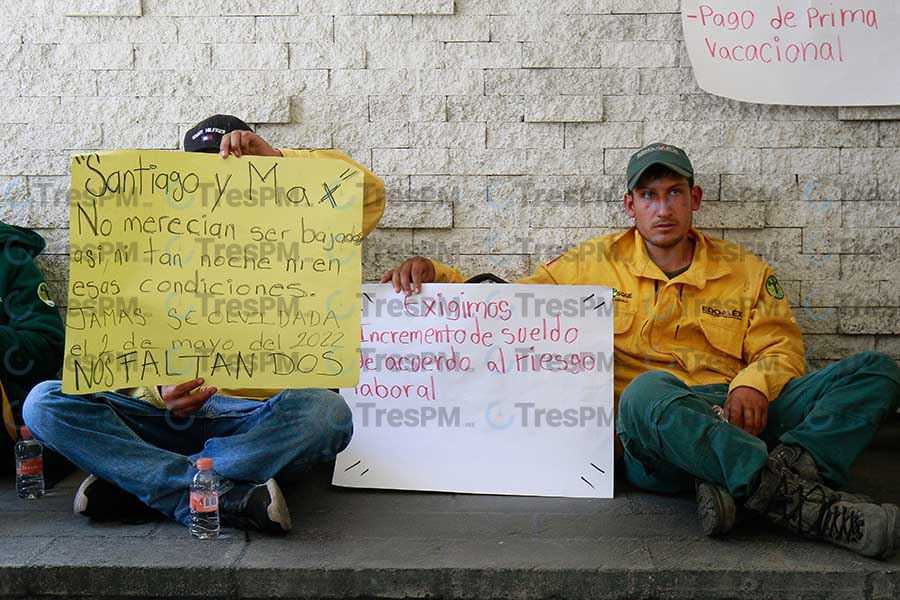 -Pago de Prima
Vacacional
"Santiago y Max"
No merecian ser bajados
asi, ni tan noche ni en
esas condiciones.
JAMAS SE OLVIDADA
el 2 de mayo del 2022
NOS FALTAN DOS
Exigimos
Incremento de sueldo
de acuerdo al riesgo
laboral
TOMMY HILFIGER
EDOMÉX
TresPM